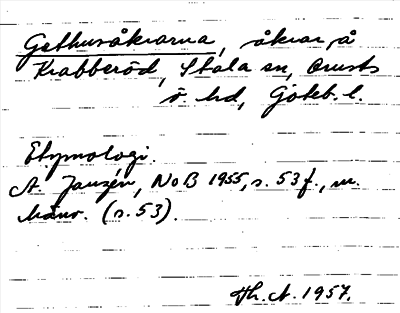 Gethusåkrarna, åkrar, å
Krabberöd, Stala sn, Orusts
ö. hd, Göteb. l.
Etymologi.
A. Janzén, NoB 1955, s. 53 f., m.
hänv. (s. 53).
Th. A. 1957.